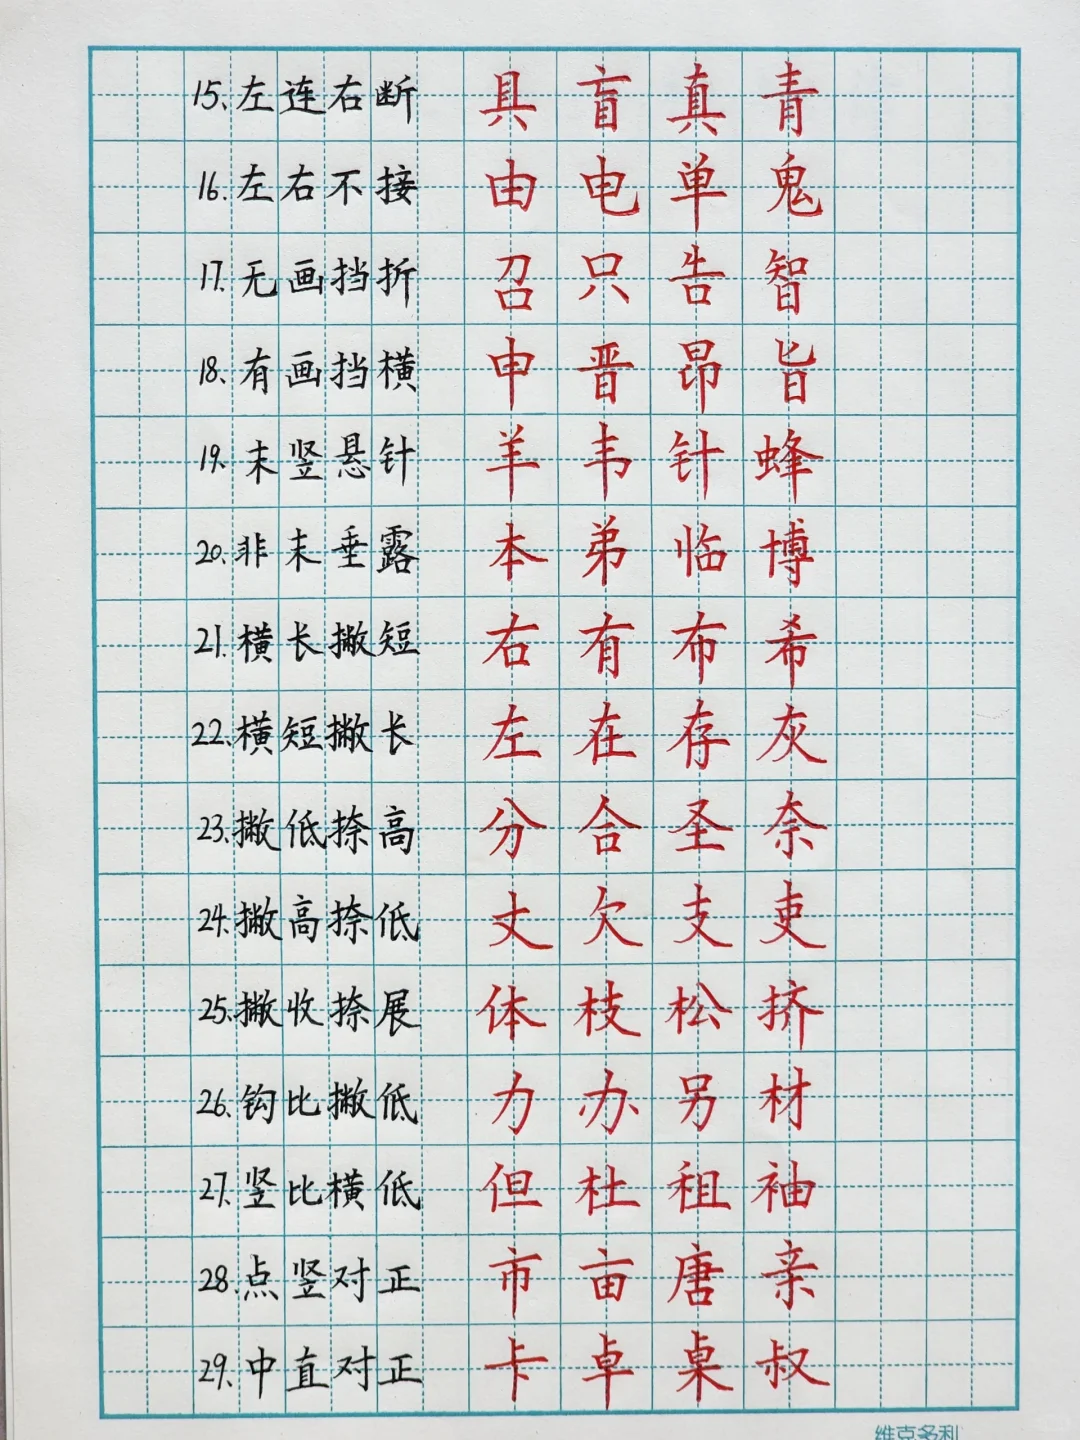 15、左连右断 具 盲 真 青
16、左右不接 由 电 单 鬼
17、无画挡折 召 只 告 智
18、有画挡横 申 晋 昂 旨
19、末竖悬针 羊 韦 针 蜂
20、非末垂露 本 弟 临 博
21、横长撇短 右 有 布 希
22、横短撇长 左 在 存 灰
23、撇低捺高 分 合 圣 奈
24、撇高捺低 丈 欠 支 吏
25、撇收捺展 体 枝 松 挤
26、钩比撇低 力 办 另 材
27、竖比横低 但 杜 租 袖
28、点竖对正 市 亩 唐 亲
29、中直对正 卡 卓 桌 叔
维克多利